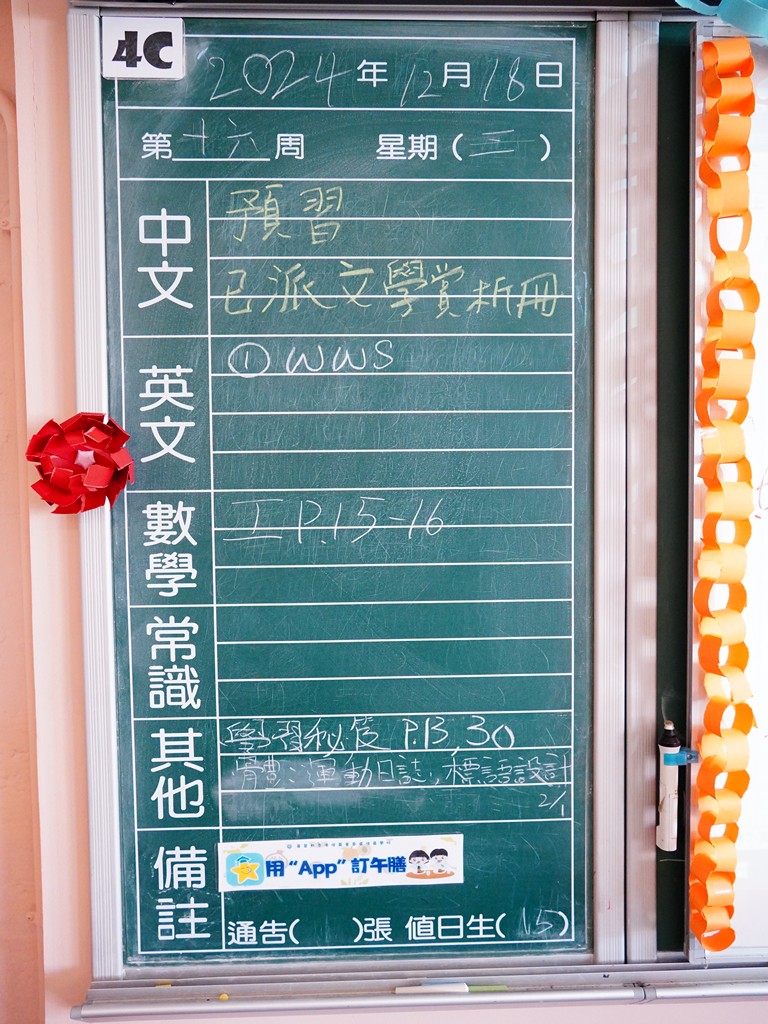 4C
2024年12月18日
第十六周 星期(三)
中文
預習
已派文學賞析冊
英文
① WWS
數學
工 P.15-16
常識
其他
學習秘笈 P.13,30
體:運動日誌,標語設計
2/1
備註
用“App”訂午膳
通告( )張 值日生(15)